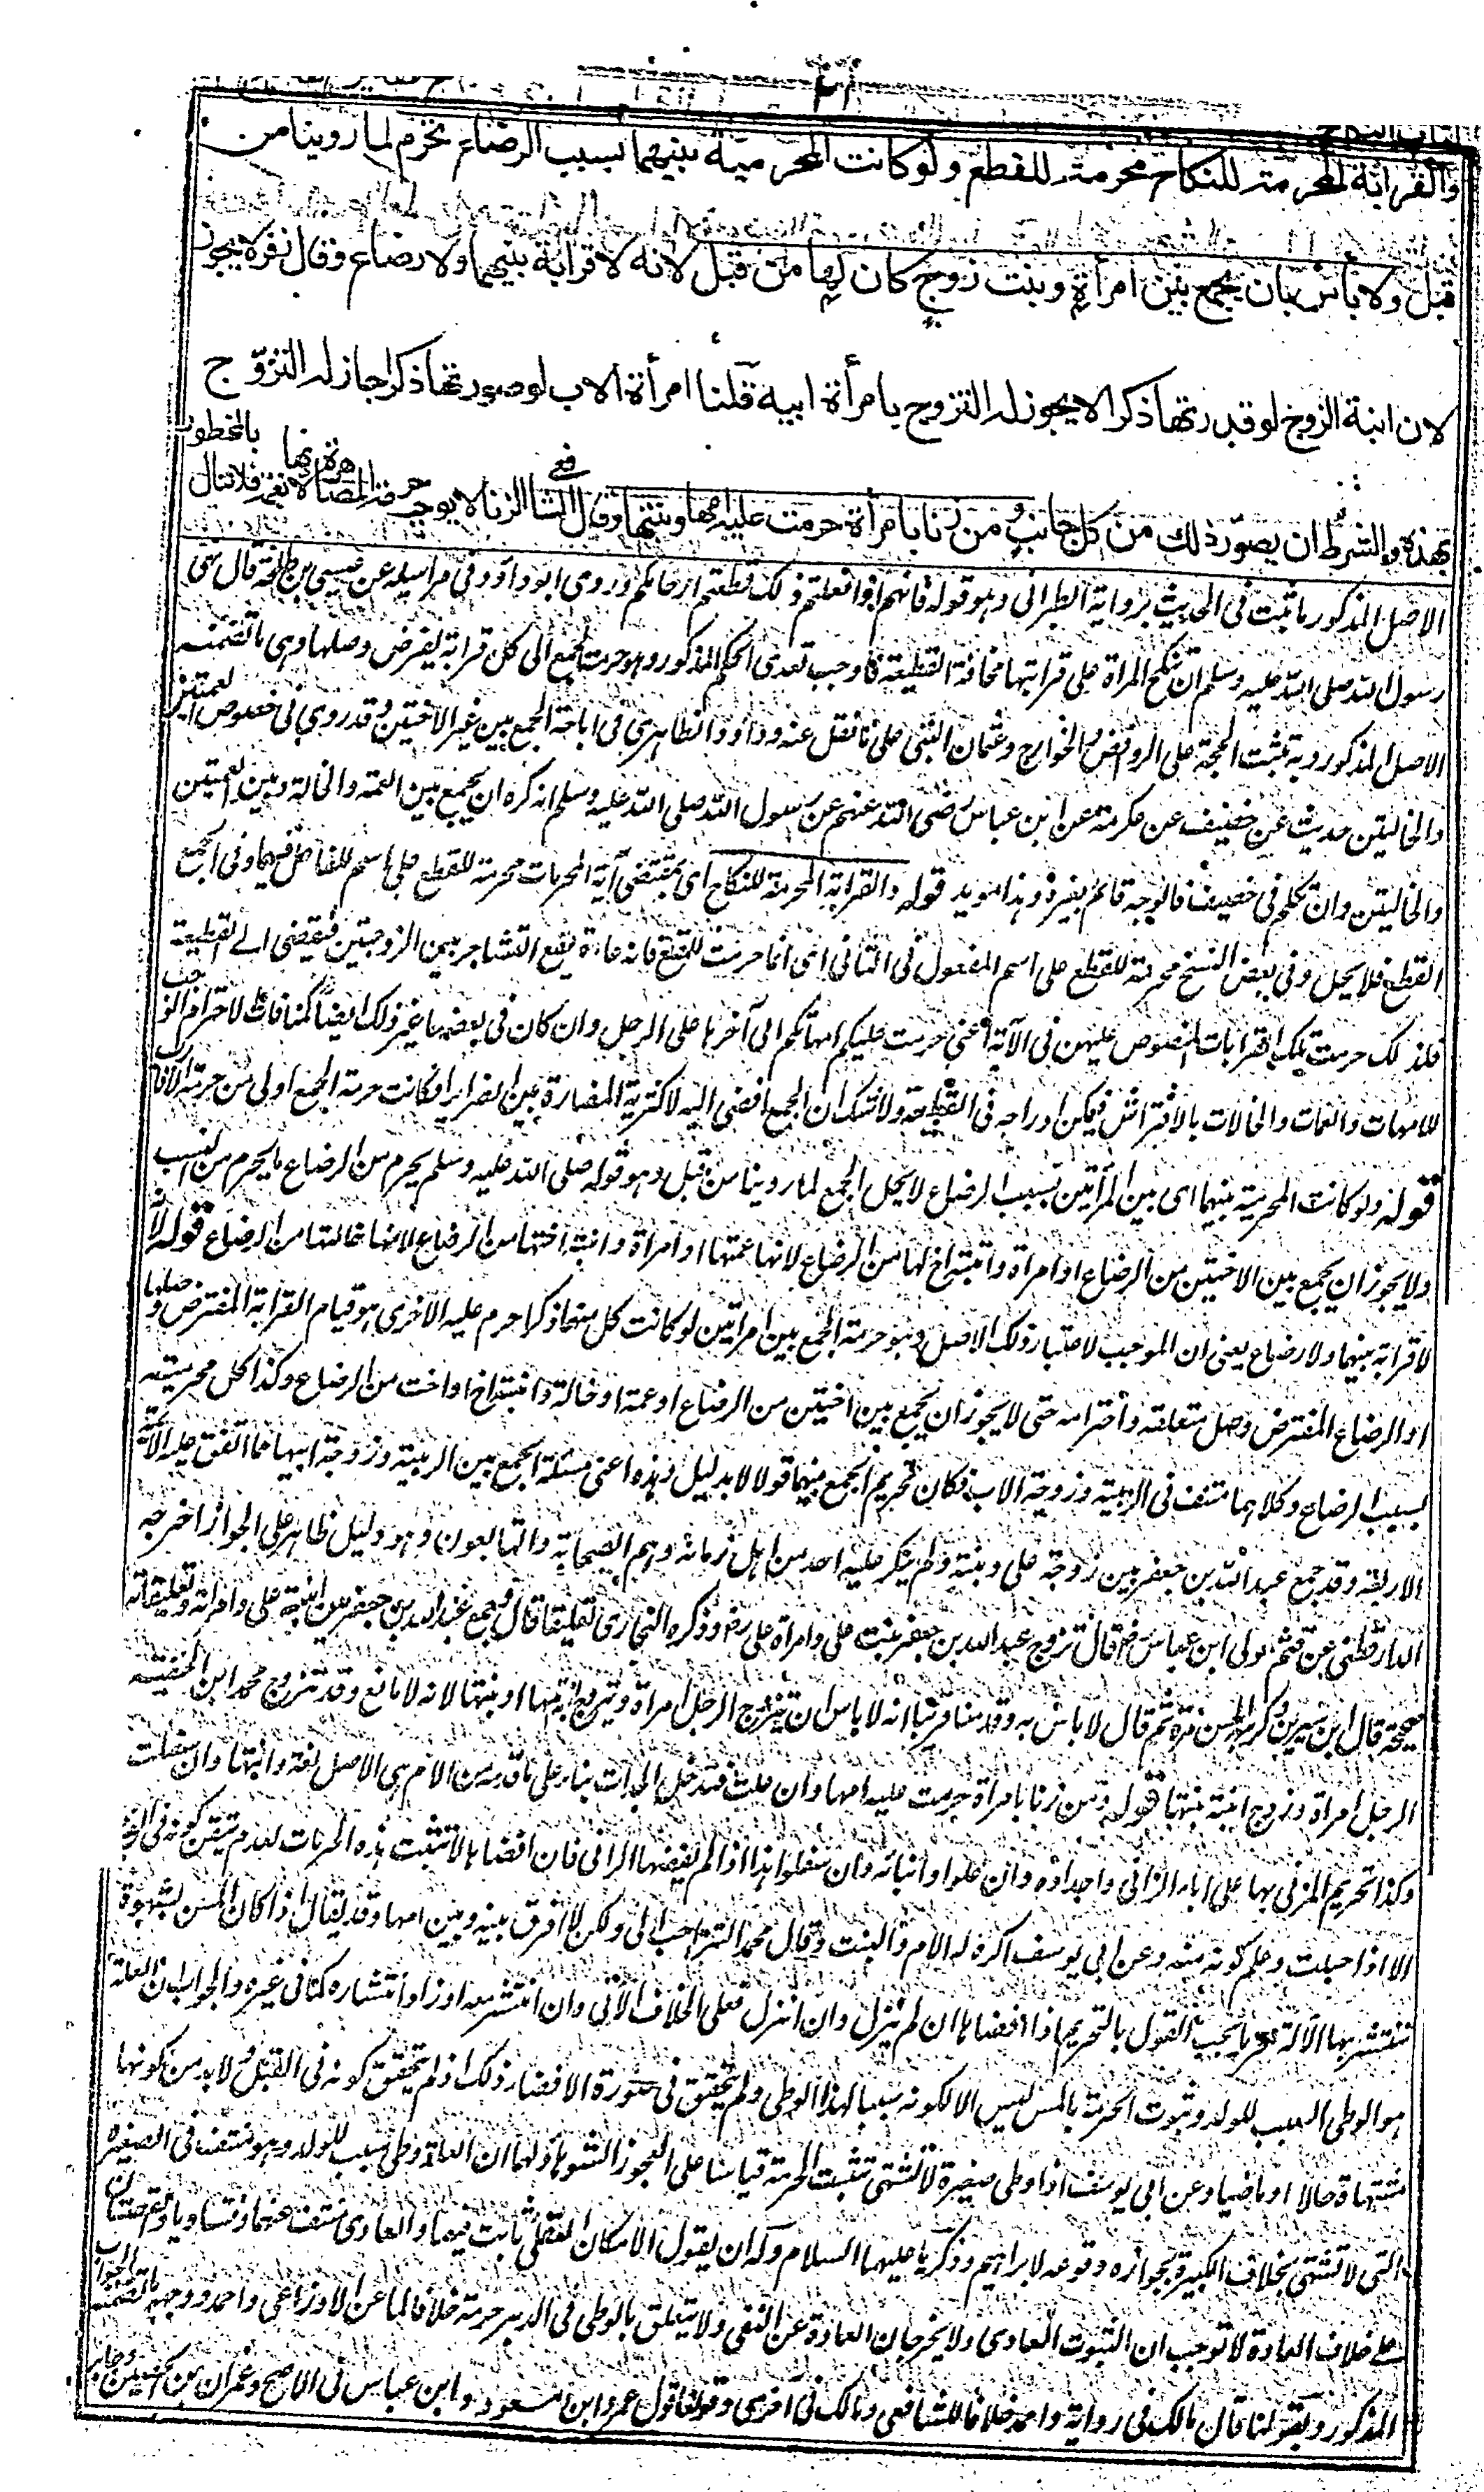 والقرابة المحرمة للنكاح محرمة للقطع ولو كانت المحرمية بينهما بسبب الرضاع تحرم لما روينا من
قبل ولا بأس بان يجمع بين امرأة وبنت زوج كان لها من قبل لانه لا قرابة بينهما ولا رضاع وقال زفر لا يجوز
لان ابنة الزوج لو قدرتها ذكرا لا يجوز له التزوج بامرأة ابيه قلنا امرأة الاب لو صورتها ذكرا جاز له التزوج
بهذه والشرط ان يصور ذلك من كل جانب ومن زنا بامرأة حرمت عليه امها وبنتها وقال الشافعي الزنا لا يوجب حرمة المصاهرة لانها نعمة فلا تنال بالمحظور
الاصل المذكور ما ثبت في الحديث برواية الطبراني وهو قوله فانهم اذا فعلتم ذلك قطعتم ارحامكم وروى ابوداؤد في مراسيله عن عيسى بن طلحة قال نهى
رسول الله صلى الله عليه وسلم ان تنكح المراة على قرابتها مخافة القطيعة فاوجب تعدى الحكم المذكور وهو حرمة الجمع الى كل قرابة يفرض وصلها وهي ما تضمنه
الاصل المذكور وبه تثبت الحجة على الروافض والخوارج وعثمان البتي على ما نقل عنه وداؤد الظاهري في اباحة الجمع بين غير الاختين وقد روى في خصوص العمتين
والخالتين حديث عن خصيف عن عكرمة عن ابن عباس رضي الله عنهم عن رسول الله صلى الله عليه وسلم انه كره ان يجمع بين العمة والخالة وبين العمتين
والخالتين وان تكلم في خصيف فالوجه قائم بغيره وهذا مويد قوله والقرابة المحرمة للنكاح اى بمقتضى آية المحرمات محرمة للقطع على اسم الفاعل فيهما وفي الجمع
القطع فلا يحل وفي بعض النسخ محرمة للقطع على اسم المفعول في الثاني اى انما حرمت للقطع فانه عادة يقع التشاجر بين الزوجتين فيفضى الى القطيعة
فلذلك حرمت تلك القرابات المنصوص عليهن في الآية اعني حرمت عليكم امهاتكم الى آخرها على الرجل وان كان في بعضها غير ذلك ايضا كمنافات الاحترام الواجب
للامهات والعمات والخالات بالافتراش فيمكن ادراجه في القطيعة ولا شك ان الجمع افضى اليه لاكثرية المضارة بين الضراير فكانت حرمة الجمع اولى من حرمة الاقارب
قوله ولو كانت المحرمية بينهما اى بين المرأتين بسبب الرضاع لا يحل الجمع لما روينا من قبل وهو قوله صلى الله عليه وسلم يحرم من الرضاع ما يحرم من النسب
ولا يجوز ان يجمع بين الاختين من الرضاع او امراة وابنة اخ لها من الرضاع لانها عمتها او امراة وابنة اختها من الرضاع لانها خالتها من الرضاع قوله لانه
لا قرابة بينهما ولا رضاع يعني ان الموجب لاعتبار ذلك الاصل وهو حرمة الجمع بين امراتين لو كانت كل منهما ذكرا حرم عليه الاخرى هو قيام القرابة المفترض وصلها
او الرضاع المفترض وصل متعلقه واحترامه حتى لا يجوز ان يجمع بين اختين من الرضاع او عمة او خالة وابنة اخ او اخت من الرضاع وكذا كل محرمية
بسبب الرضاع وكلاهما منتف في الربيبة وزوجة الاب فكان تحريم الجمع بينهما قولا لا بدليل وهذه اعني مسئلة الجمع بين الربيبة وزوجة ابيها مما اتفق عليه الائمة
الاربعة وقد جمع عبد الله بن جعفر بين زوجة على وبنته ولم ينكر عليه احد من اهل زمانه وهم الصحابة والتابعون وهو دليل ظاهر على الجواز اخرجه
الدارقطني عن قثم مولى ابن عباس قال تزوج عبد الله بن جعفر بنت على وامراة على رض وذكره البخارى تعليقا قال وجمع عبد الله بن جعفر بين ابنة على وامراته وتعليقاته
صحيحة قال ابن سيرين وكرهه الحسن مرة ثم قال لا باس به وقدمنا قريبا انه لا باس ان يتزوج الرجل امراة ويتزوج ابنه امها او بنتها لانه لا مانع وقد تزوج محمد ابن الحنفية
الرجل امراة وزوج ابنه بنتها قوله ومن زنا بامراة حرمت عليه امها وان علت فتدخل الجدات بناء على ما قدمه من الام هي الاصل لغة وابنتها وان سفلت
وكذا تحريم المزني بها على اباء الزاني واجداده وان علوا وابنائه وان سفلوا هذا اذا لم يفضها الزاني فان افضاها لا تثبت هذه الحرمات لعدم تيقن كونه في الفرج
الا اذا حبلت وعلم كونه منه وعن ابي يوسف اكره له الام والبنت وقال محمد التنزه احب الى ولكن لا افرق بينه وبين امها وقد يقال اذا كان المس بشهوة
تنتشر بها الآلة محرما يجب القول بالتحريم اذا افضاها ان لم ينزل وان انزل فعلى الخلاف الآتي وان انتشر معه او زاد انتشاره كما في غيره والجواب ان العلة
هو الوطى السبب للولد وثبوت الحرمة بالمس ليس الا لكونه سببا لهذا الوطى ولم يتحقق في صورة الافضاء ذلك اذ لم يتحقق كونه في القبل ولا بد من كونها
مشتهاة حالا او ماضيا وعن ابي يوسف اذا وطى صغيرة لا تشتهى تثبت الحرمة قياسا على العجوز الشوهاء ولهما ان العلة وطى سبب للولد وهو منتف في الصغيرة
التي لا تشتهى بخلاف الكبيرة لجوازه وقوعه لابراهيم وزكريا عليهما السلام وله ان يقول الامكان العقلي ثابت فيهما والعادى منتف عنهما فتساويا والقصتان
على خلاف العادة لا توجب ان الثبوت العادى ولا يخرجان العادة عن النفى ولا يتعلق بالوطى في الدبر حرمة خلافا لما عن الاوزاعي واحمد ووجهه ما تضمنه الجواب
المذكور وبقولنا قال مالك في رواية واحمد خلافا للشافعي ومالك في اخرى وقولنا قول عمر وابن مسعود وابن عباس في الاصح وعمران بن الحصين وجابر